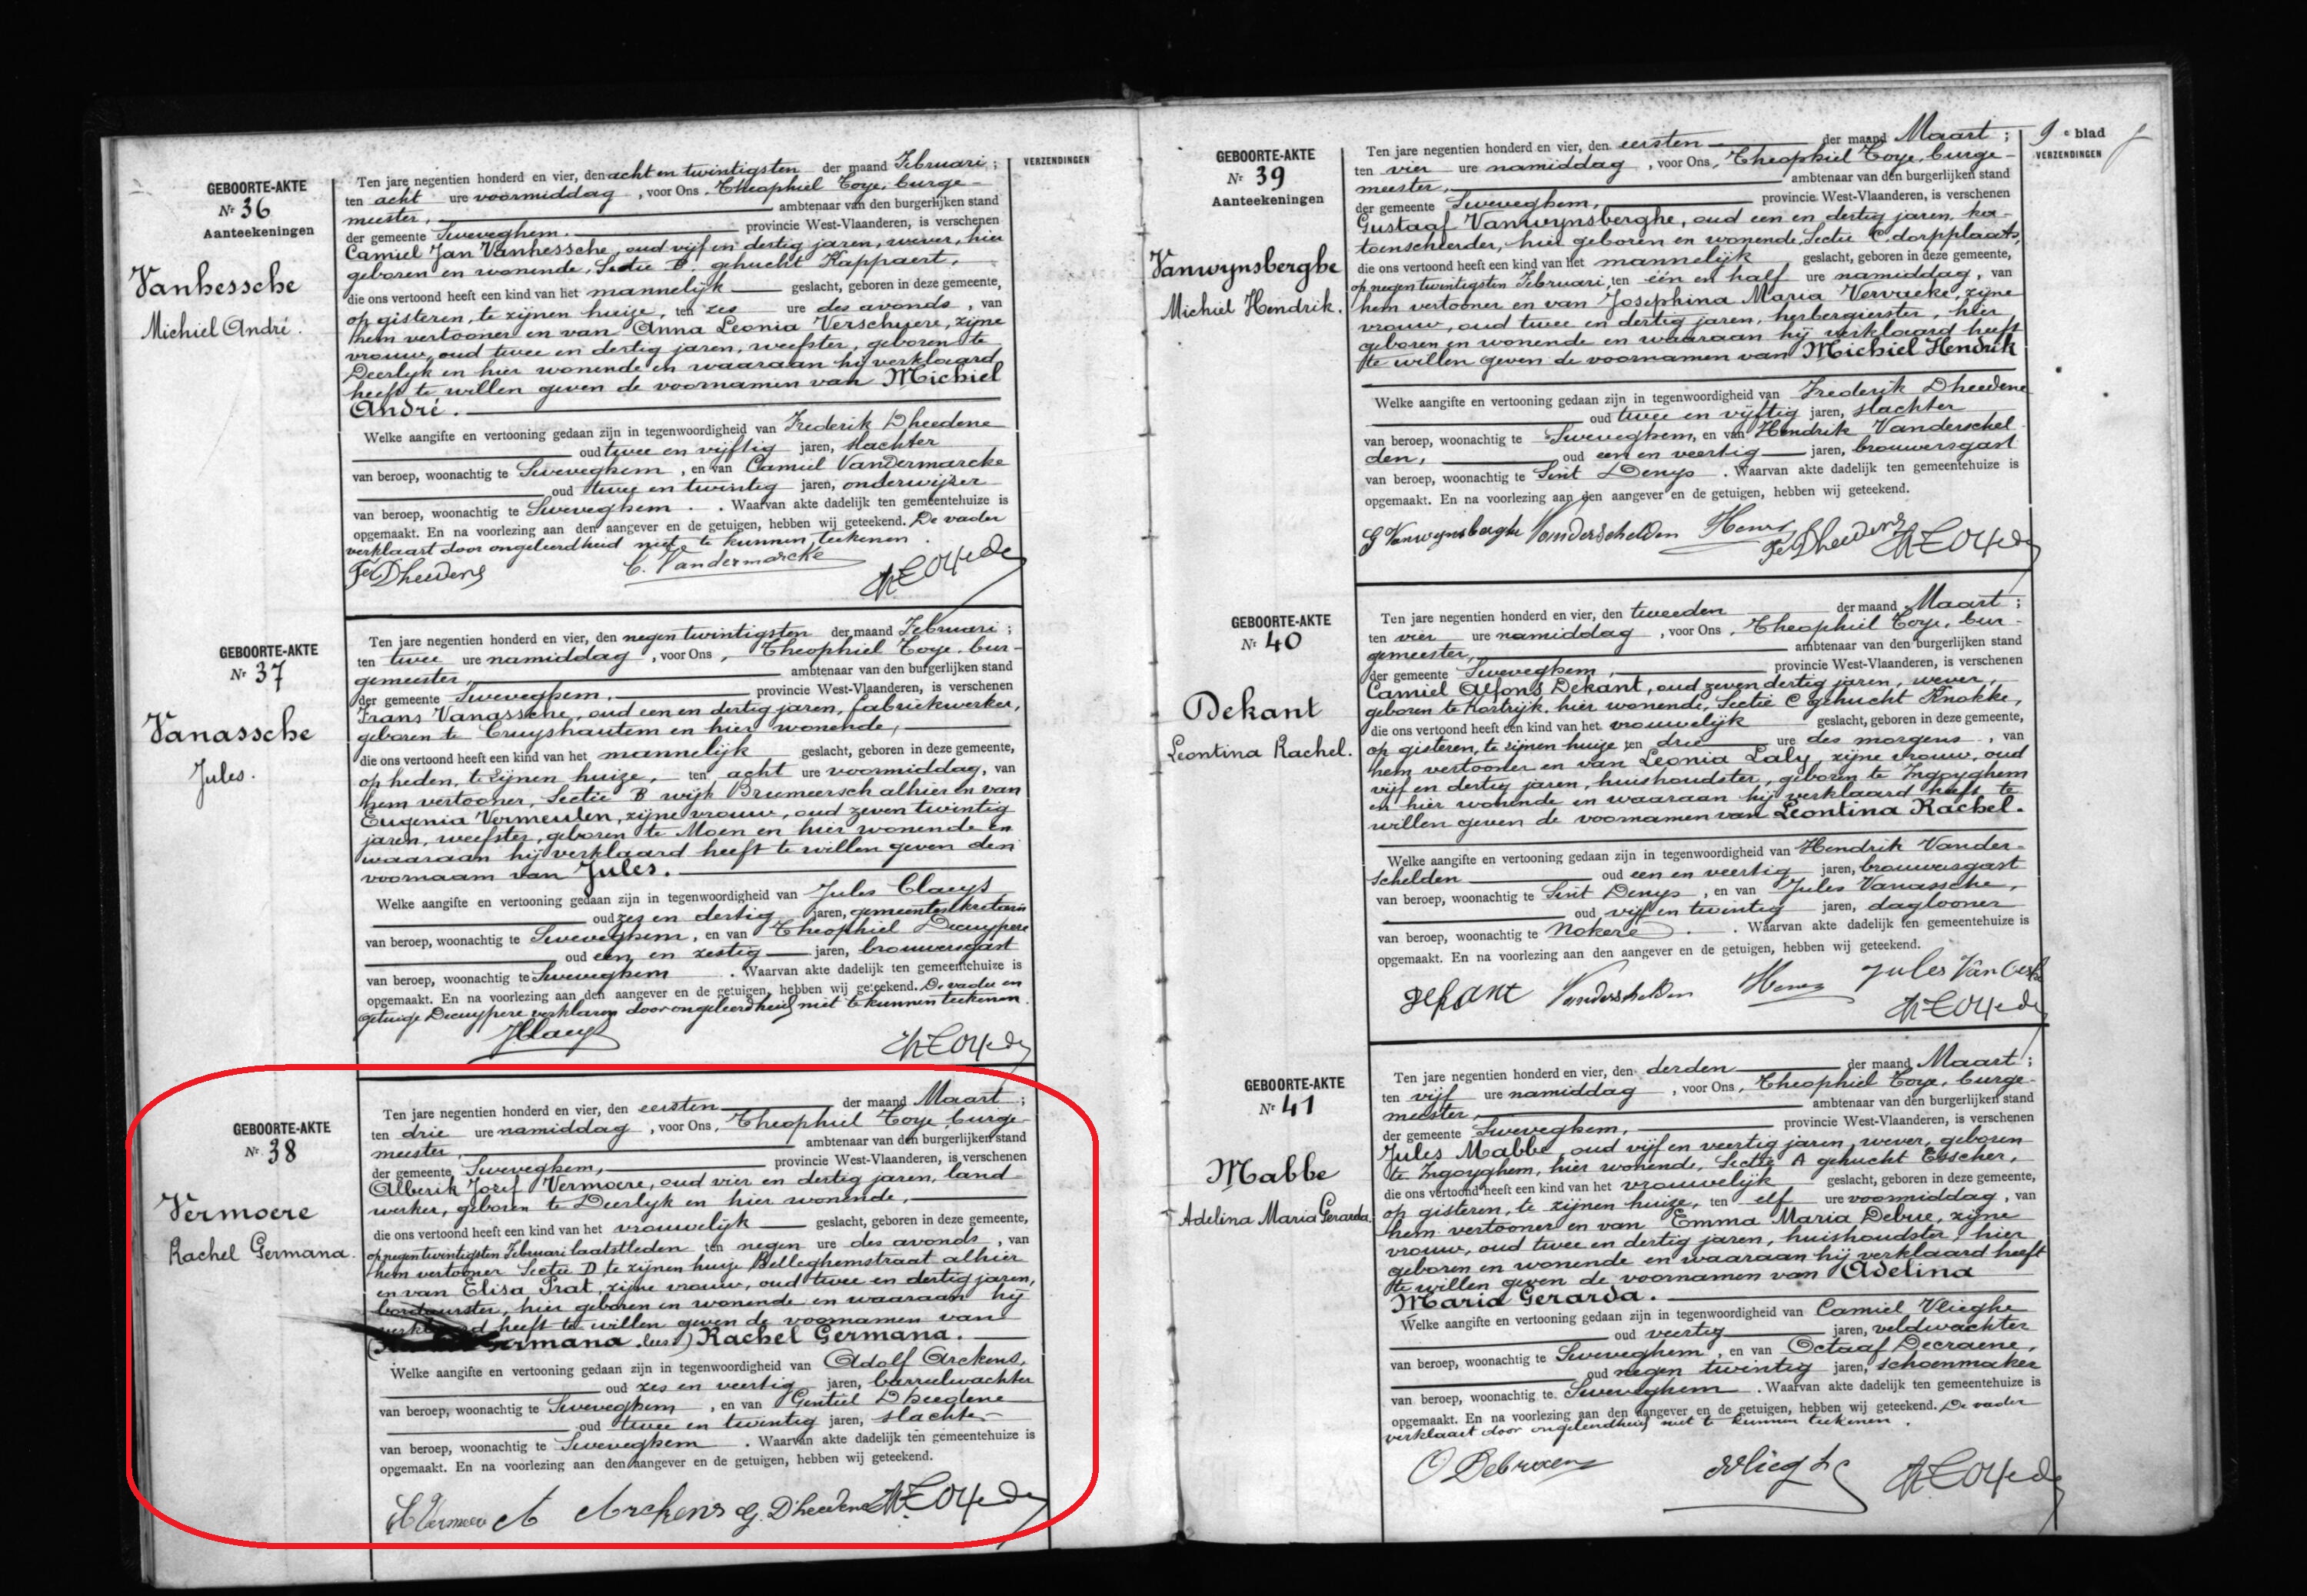 GEBOORTE-AKTE
Nr 36
Aanteekeningen
Vanhessche
Michiel André.
Ten jare negentien honderd en vier, den acht en twintigsten der maand Februari ;
ten acht ure voormiddag , voor Ons , Theophiel Toye, burge-
meester, ambtenaar van den burgerlijken stand
der gemeente Sweveghem. provincie West-Vlaanderen, is verschenen
Camiel Jan Vanhessche, oud vijf en dertig jaren, wever, hier
geboren en wonende, Sectie B. gehucht Kappaert,
die ons vertoond heeft een kind van het mannelijk geslacht, geboren in deze gemeente,
op gisteren, te zijnen huize, ten zes ure des avonds , van
hem vertooner en van Anna Leonia Verschuere, zijne
vrouw, oud twee en dertig jaren, weefster, geboren te
Deerlyk en hier wonende en waaraan hij verklaard
heeft te willen geven de voornamen van Michiel
André.
Welke aangifte en vertooning gedaan zijn in tegenwoordigheid van Frederik Dheedene
oud twee en vijftig jaren, slachter
van beroep, woonachtig te Sweveghem , en van Camiel Vandermarcke
oud twee en twintig jaren, onderwijzer
van beroep, woonachtig te Sweveghem . Waarvan akte dadelijk ten gemeentehuize is
opgemaakt. En na voorlezing aan den aangever en de getuigen, hebben wij geteekend. De vader
verklaart door ongeleerdheid niet te kunnen teekenen.
Fr Dheedene C. Vandermarcke
VERZENDINGEN
GEBOORTE-AKTE
Nr 37
Vanassche
Jules.
Ten jare negentien honderd en vier, den negen twintigsten der maand Februari ;
ten twee ure namiddag , voor Ons , Theophiel Toye, bur-
gemeester, ambtenaar van den burgerlijken stand
der gemeente Sweveghem. provincie West-Vlaanderen, is verschenen
Frans Vanassche, oud een en dertig jaren, fabriekwerker,
geboren te Cruyshautem en hier wonende,
die ons vertoond heeft een kind van het mannelijk geslacht, geboren in deze gemeente,
op heden, te zijnen huize, ten acht ure voormiddag, van
hem vertooner, Sectie B wijk Brumeersch alhier en van
Eugenia Vermeulen, zijne vrouw, oud zeven twintig
jaren, weefster, geboren te Moen en hier wonende en
waaraan hij verklaard heeft te willen geven den
voornaam van Jules.
Welke aangifte en vertooning gedaan zijn in tegenwoordigheid van Jules Claeys
oud zes en dertig jaren, gemeentesekretaris
van beroep, woonachtig te Sweveghem, en van Theophiel Decuypere
oud een en zestig jaren, brouwersgast
van beroep, woonachtig te Sweveghem . Waarvan akte dadelijk ten gemeentehuize is
opgemaakt. En na voorlezing aan den aangever en de getuigen, hebben wij geteekend. De vader en
getuige Decuypere verklaren door ongeleerdheid niet te kunnen teekenen.
JClaeys
GEBOORTE-AKTE
Nr 38
Vermoere
Rachel Germana.
Ten jare negentien honderd en vier, den eersten der maand Maart ;
ten drie ure namiddag , voor Ons , Theophiel Toye, burge-
meester, ambtenaar van den burgerlijken stand
der gemeente Sweveghem, provincie West-Vlaanderen, is verschenen
Alberik Jozef Vermoere, oud vier en dertig jaren, land-
werker, geboren te Deerlyk en hier wonende,
die ons vertoond heeft een kind van het vrouwelijk geslacht, geboren in deze gemeente,
op negen twintigsten Februari laatstleden ten negen ure des avonds , van
hem vertooner Sectie D, te zijnen huize Belleghemstraat alhier
en van Elisa Prat, zijne vrouw, oud twee en dertig jaren,
bordeurster, hier geboren en wonende en waaraan hij
verklaard heeft te willen geven de voornamen van
Germana. lees) Rachel Germana.
Welke aangifte en vertooning gedaan zijn in tegenwoordigheid van Adolf Arckens,
oud zes en veertig jaren, barreelwachter
van beroep, woonachtig te Sweveghem , en van Gentiel Dheedene
oud twee en twintig jaren, slachter
van beroep, woonachtig te Sweveghem . Waarvan akte dadelijk ten gemeentehuize is
opgemaakt. En na voorlezing aan den aangever en de getuigen, hebben wij geteekend.
A Vermoere A Arckens G. Dheedene
9e blad
VERZENDINGEN
GEBOORTE-AKTE
Nr 39
Aanteekeningen
Vanwynsberghe
Michiel Hendrik.
Ten jare negentien honderd en vier, den eersten der maand Maart ;
ten vier ure namiddag , voor Ons , Theophiel Toye, burge-
meester, ambtenaar van den burgerlijken stand
der gemeente Sweveghem, provincie West-Vlaanderen, is verschenen
Gustaaf Vanwynsberghe, oud een en dertig jaren, ka-
toenscheerder, hier geboren en wonende, Sectie C, dorpplaats,
die ons vertoond heeft een kind van het mannelijk geslacht, geboren in deze gemeente,
op negen twintigsten Februari, ten één en half ure namiddag , van
hem vertooner en van Josephina Maria Vervaeke, zijne
vrouw, oud twee en dertig jaren, herbergierster, hier
geboren en wonende en waaraan hij verklaard heeft
te willen geven de voornamen van Michiel Hendrik
Welke aangifte en vertooning gedaan zijn in tegenwoordigheid van Frederik Dheedene
oud twee en vijftig jaren, slachter
van beroep, woonachtig te Sweveghem, en van Hendrik Vanderschel
den, oud een en veertig jaren, brouwersgast
van beroep, woonachtig te Sint Denys . Waarvan akte dadelijk ten gemeentehuize is
opgemaakt. En na voorlezing aan den aangever en de getuigen, hebben wij geteekend.
G Vanwynsberghe Vanderschelden Henri Fr Dheedene
GEBOORTE-AKTE
Nr 40
Dekant
Leontina Rachel.
Ten jare negentien honderd en vier, den tweeden der maand Maart ;
ten vier ure namiddag , voor Ons , Theophiel Toye, bur-
gemeester, ambtenaar van den burgerlijken stand
der gemeente Sweveghem, provincie West-Vlaanderen, is verschenen
Camiel Alfons Dekant, oud zeven dertig jaren, wever,
geboren te Kortrijk, hier wonende, Sectie C gehucht Knokke,
die ons vertoond heeft een kind van het vrouwelijk geslacht, geboren in deze gemeente,
op gisteren, te zijnen huize ten drie ure des morgens , van
hem vertooner en van Leonia Laly, zijne vrouw, oud
vijf en dertig jaren, huishoudster, geboren te Ingoyghem
en hier wonende en waaraan hij verklaard heeft te
willen geven de voornamen van Leontina Rachel.
Welke aangifte en vertooning gedaan zijn in tegenwoordigheid van Hendrik Vander-
schelden oud een en veertig jaren, brouwersgast
van beroep, woonachtig te Sint Denys , en van Jules Vanassche,
oud vijf en twintig jaren, daglooner
van beroep, woonachtig te Nokere . Waarvan akte dadelijk ten gemeentehuize is
opgemaakt. En na voorlezing aan den aangever en de getuigen, hebben wij geteekend.
Dekant Vanderschelden Henri Jules
GEBOORTE-AKTE
Nr 41
Mabbe
Adelina Maria Gerarda.
Ten jare negentien honderd en vier, den derden der maand Maart ;
ten vijf ure namiddag , voor Ons , Theophiel Toye, burge-
meester, ambtenaar van den burgerlijken stand
der gemeente Sweveghem, provincie West-Vlaanderen, is verschenen
Jules Mabbe, oud vijf en veertig jaren, wever, geboren
te Ingoyghem, hier wonende, Sectie A gehucht Esscher,
die ons vertoond heeft een kind van het vrouwelijk geslacht, geboren in deze gemeente,
op gisteren, te zijnen huize, ten elf ure voormiddag , van
hem vertooner en van Emma Maria Debue, zijne
vrouw, oud twee en dertig jaren, huishoudster, hier
geboren en wonende en waaraan hij verklaard heeft
te willen geven de voornamen van Adelina
Maria Gerarda.
Welke aangifte en vertooning gedaan zijn in tegenwoordigheid van Camiel Vlieghe
oud veertig jaren, veldwachter
van beroep, woonachtig te Sweveghem , en van Octaaf Decraene,
oud negen twintig jaren, schoenmaker
van beroep, woonachtig te Sweveghem . Waarvan akte dadelijk ten gemeentehuize is
opgemaakt. En na voorlezing aan den aangever en de getuigen, hebben wij geteekend. De vader
verklaart door ongeleerdheid niet te kunnen teekenen.